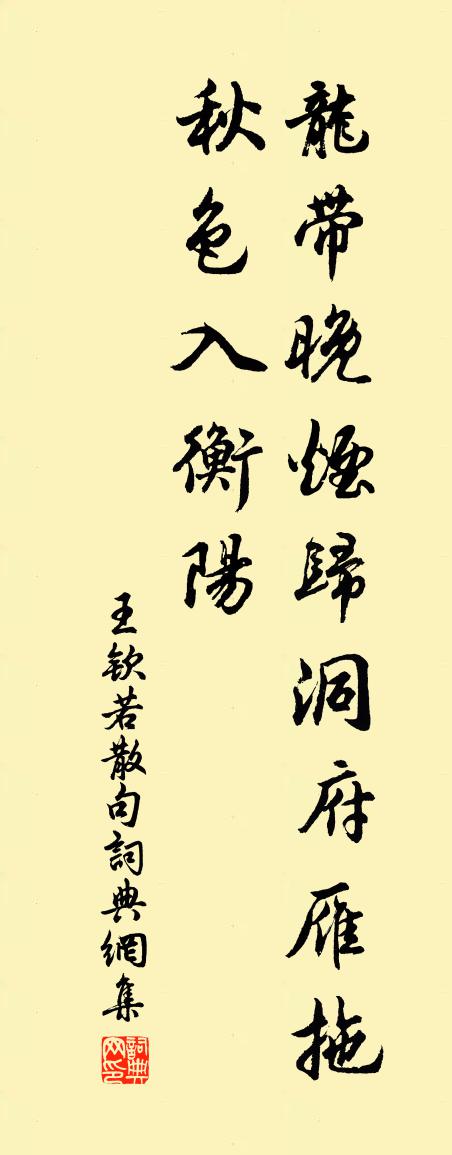 龍帶晚煙歸洞府雁拖
秋色入衡陽
王欽若散句詞典網集
詞典网印